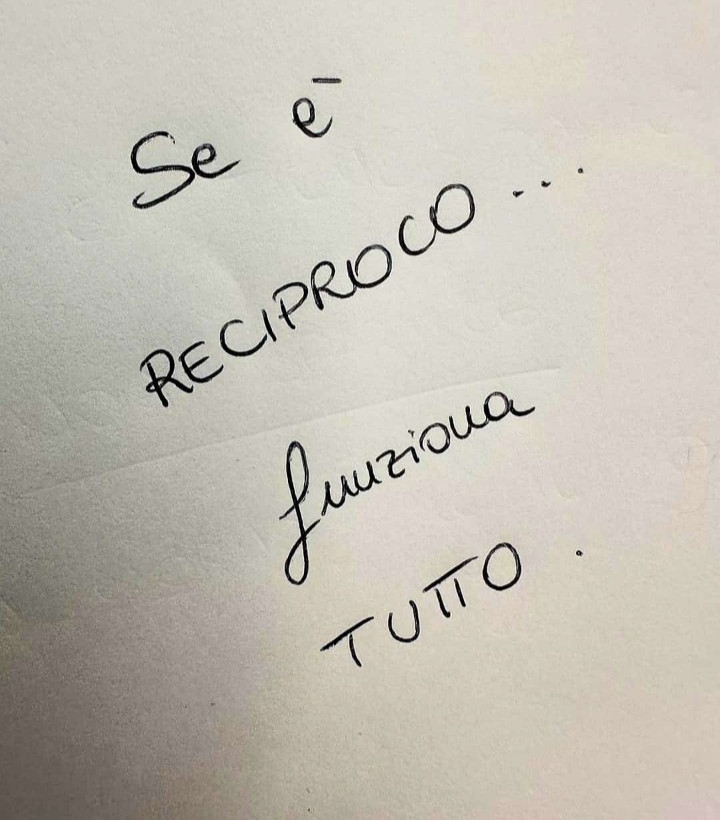 Se è
RECIPROCO...
funziona
TUTTO.